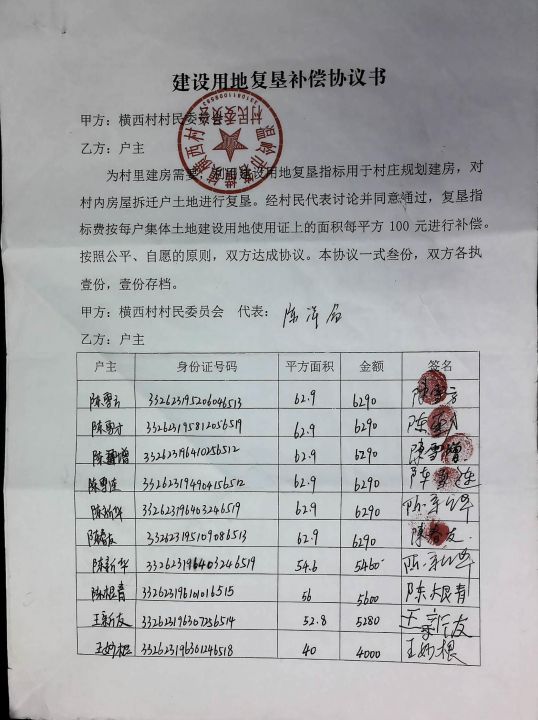 建设用地复垦补偿协议书
甲方：横西村村民委员会
乙方：户主
为村里建房需要，利用建设用地复垦指标用于村庄规划建房，对
村内房屋拆迁户土地进行复垦。经村民代表讨论并同意通过，复垦指
标费按每户集体土地建设用地使用证上的面积每平方 100 元进行补偿。
按照公平、自愿的原则，双方达成协议。本协议一式叁份，双方各执
壹份，壹份存档。
甲方：横西村村民委员会 代表：陈
乙方：户主
户主 身份证号码 平方面积 金额 签名
陈雪云 332623195206046513 62.9 6290 陈雪云
陈雪 332623195812056519 62.9 6290 陈
陈雪增 332623196410256512 62.9 6290 陈雪增
陈雪连 332623194904156512 62.9 6290 陈雪连
陈新华 332623196403246519 62.9 6290 陈新华
陈春友 332623195109086513 62.9 6290 陈春友
陈新华 332623196403246519 54.6 5460 陈新华
陈根青 332623196101016515 56 5600 陈根青
王新友 332623196307256514 52.8 5280 王新友
王妙根 332623196301246518 40 4000 王妙根